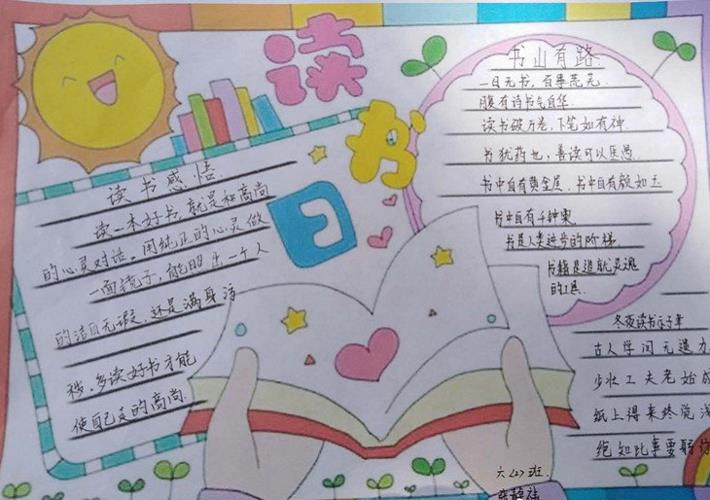 读书日
读书感悟
读一本好书,就是和高尚
的心灵对话。用纯正的心灵做
一面镜子,能照出一个人
的洁白无瑕,还是满身污
秽。多读好书才能
使自己走的高尚.
书山有路
一日无书,百事荒芜.
腹有诗书气自华
读书破万卷,下笔如有神.
书犹药也,善读可以医愚.
书中自有黄金屋、书中自有颜如玉
书中自有千钟粟
书是人类进步的阶梯.
书籍是造就灵魂
的工具.
冬夜读书示子聿
古人学问无遗力
少壮工夫老始成
纸上得来终觉浅
绝知此事要躬
六(2)班